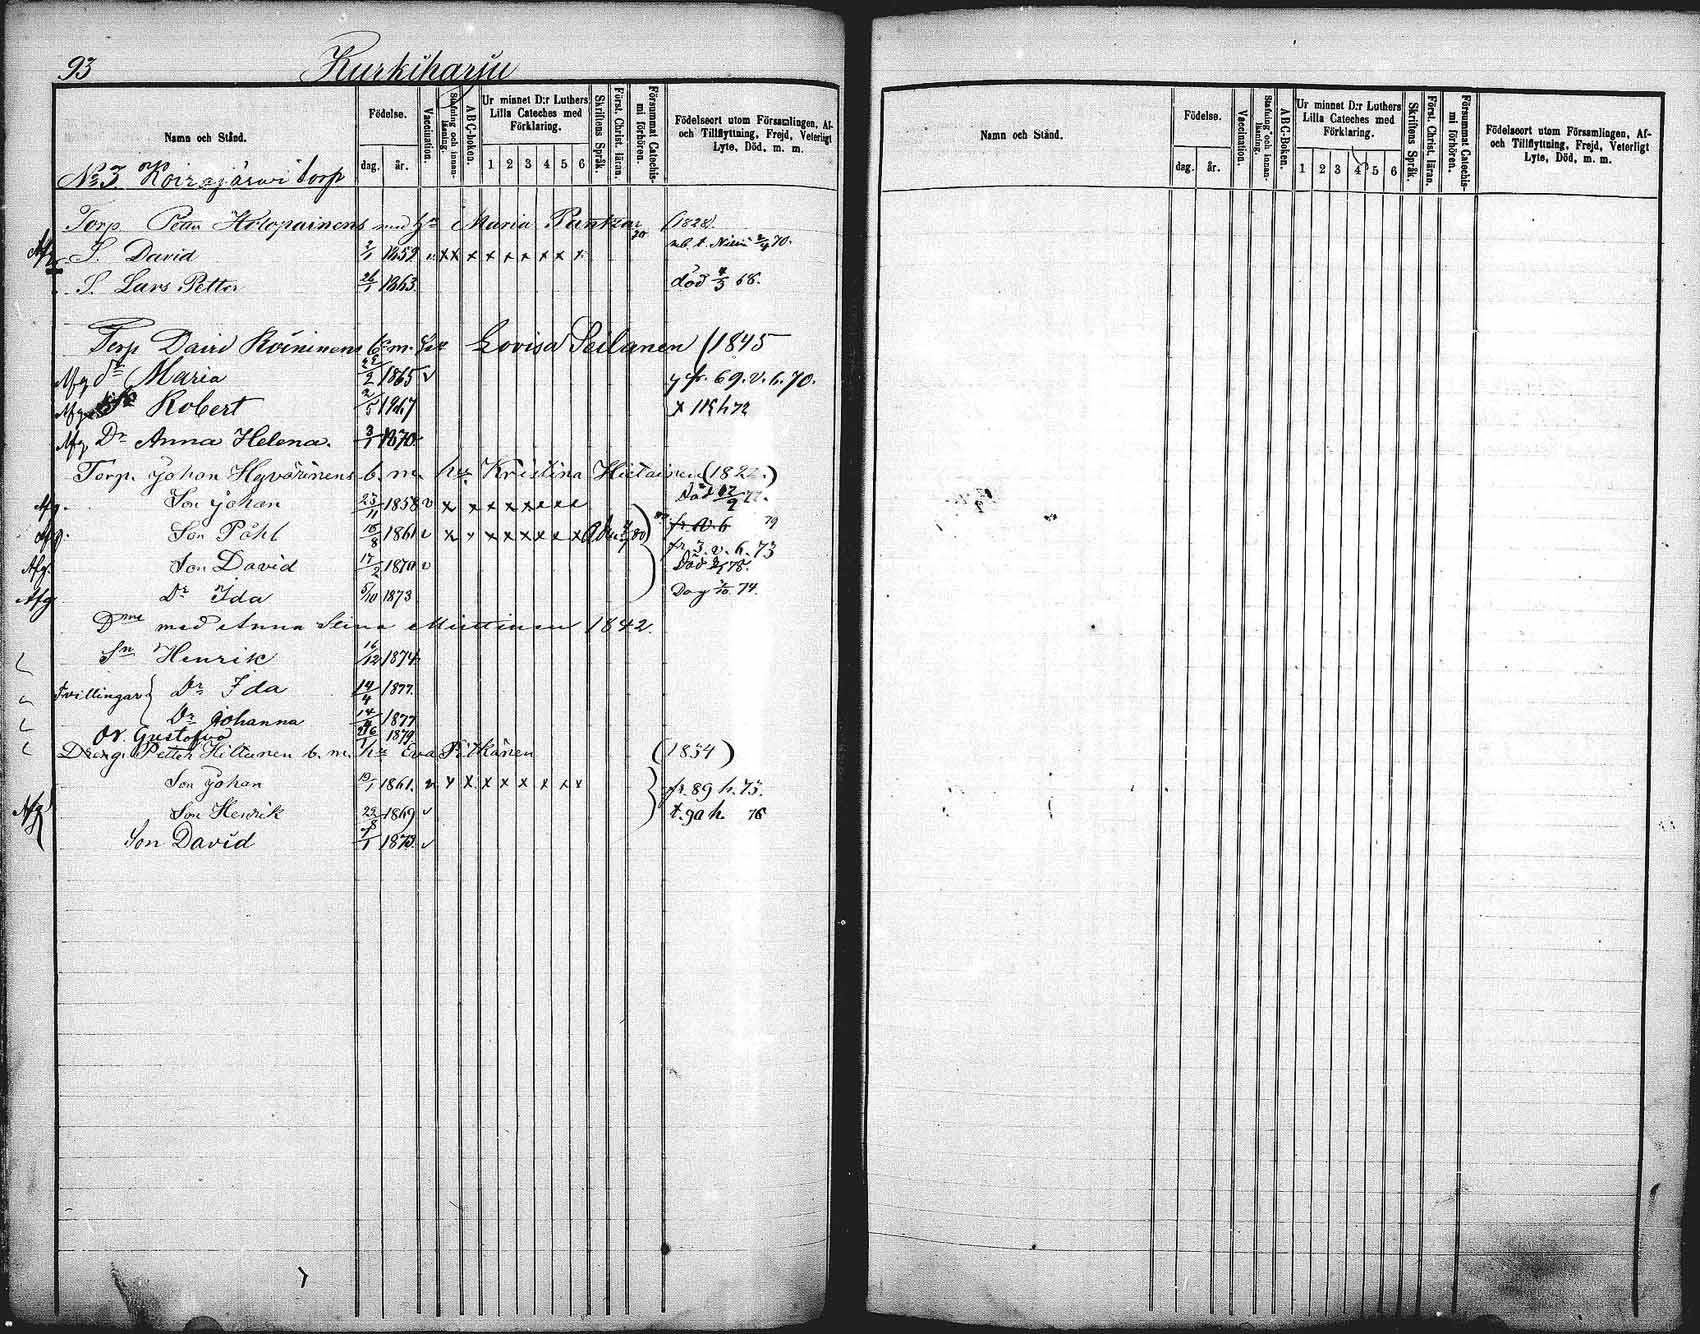 93 Kurkiharju
Namn och Stånd.
Födelse.
dag. år.
Vaccination.
Stafning och innanläsning.
ABC-boken.
Ur minnet D:r Luthers Lilla Cateches med Förklaring.
1 2 3 4 5 6
Skriftens Språk.
Först. Christ. läran.
Försummat Catechismi förhören.
Födelseort utom Församlingen, Af- och Tillflyttning, Frejd, Veterligt Lyte, Död, m. m.
No 3. Koirajärwi torp
Torp. Petter Holopainens med hu Maria Pantzar (1828)
S. David 2/1 1852 v x x x x x x x x x
S. Lars Petter 26/1 1863 död 4/3 68.
Torp David Roininens b. m. hu Lovisa Seilanen (1845
Afg dr Maria 22/2 1865 v fr. 69. v. h. 70.
Afg Robert 2/5 1867
Afg. Dr Anna Helena. 3/1 1870
Torp. Johan Hyvärinens b. m. hu Kristina Hietainen (182
Afg. Son Johan 23/11 1858 v x x x x x x x x
Afg. Son Påhl 16/8 1861 v x x x x x x x x 79
fr. 3. v. h. 73
Afg. Son David 17/2 1870 v Död 78.
Afg Dr Ida 5/10 1873 74.
med Anna Stina Miettinen 1842.
Sn Henrik 16/12 1874
Tvillingar Dr Ida 14/4 1877.
Dr Johanna 14/4 1877
Dr. Gustafva 1879
Dreng. Petter Hiltunen b. m. hu Eva Pitkänen (1834)
Son Johan 19/1 1861. v x x x x x x x x fr. 89 h. 75.
Afg Son Henrik 22/8 1869 v t. 90 h. 76
Son David 7/1 1873. v
Namn och Stånd.
Födelse.
dag. år.
Vaccination.
Stafning och innanläsning.
ABC-boken.
Ur minnet D:r Luthers Lilla Cateches med Förklaring.
1 2 3 4 5 6
Skriftens Språk.
Först. Christ. läran.
Försummat Catechismi förhören.
Födelseort utom Församlingen, Af- och Tillflyttning, Frejd, Veterligt Lyte, Död, m. m.